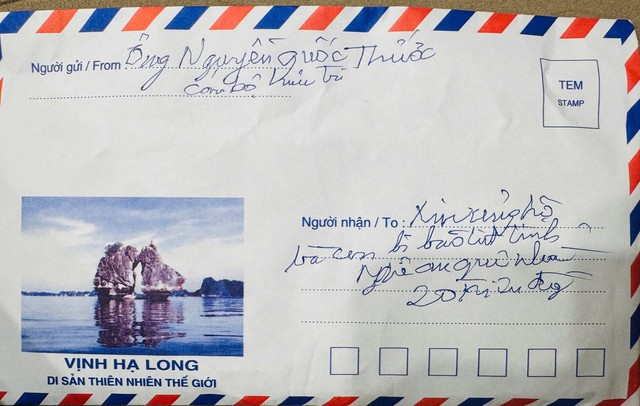 Người gửi / From Ông Nguyễn Quốc Thước
Cán bộ hưu trí
TEM
STAMP
Người nhận / To : Xin ủng hộ
bà con bị bão lụt tỉnh
Nghệ an quê nhà
20 triệu đồng
VỊNH HẠ LONG
DI SẢN THIÊN NHIÊN THẾ GIỚI